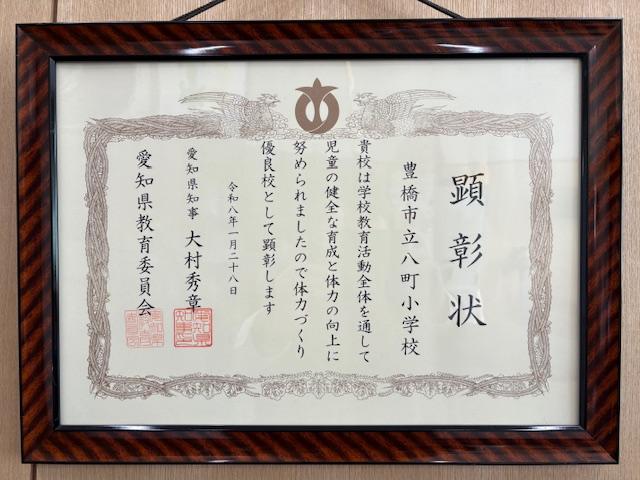 顕彰状
豊橋市立八町小学校
貴校は学校教育活動全体を通して
児童の健全な育成と体力の向上に
努められましたので体力づくり
優良校として顕彰します
令和八年一月二十八日
愛知県知事 大村秀章
愛知県教育委員会